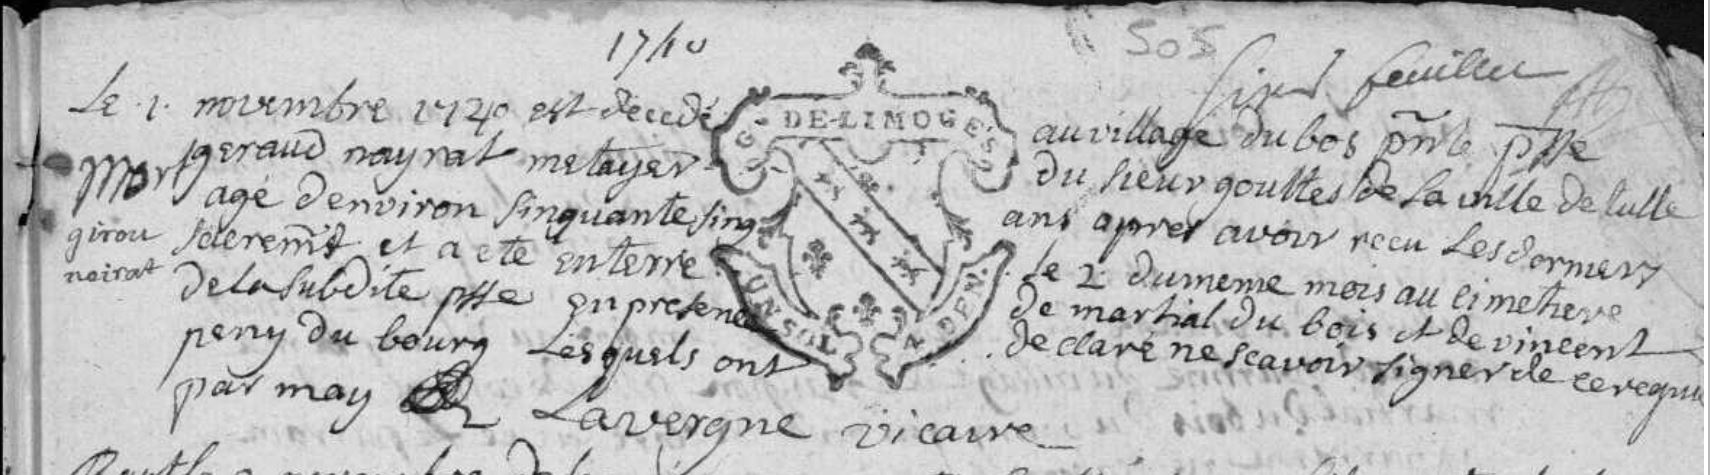 1740
505
sixd feuillet
Le 1. novembre 1740 est decedé au village du bos pnte psse
geraud nayrat metayer du sieur gouttes de la ville de tulle
agé denviron sinquante sinq ans apres avoir recu Les dorniers
Mort
girou
neirat
scieremts et a ete enterre le 2 du meme mois au cimetiere
de la subdite psse en presence de martial du bois et de vincent
peny du bourg Lesquels ont declaré ne scavoir signer de ce requis
par may Lavergne vicaire
G. DE LIMOGES
UN SOL
A. DEN.